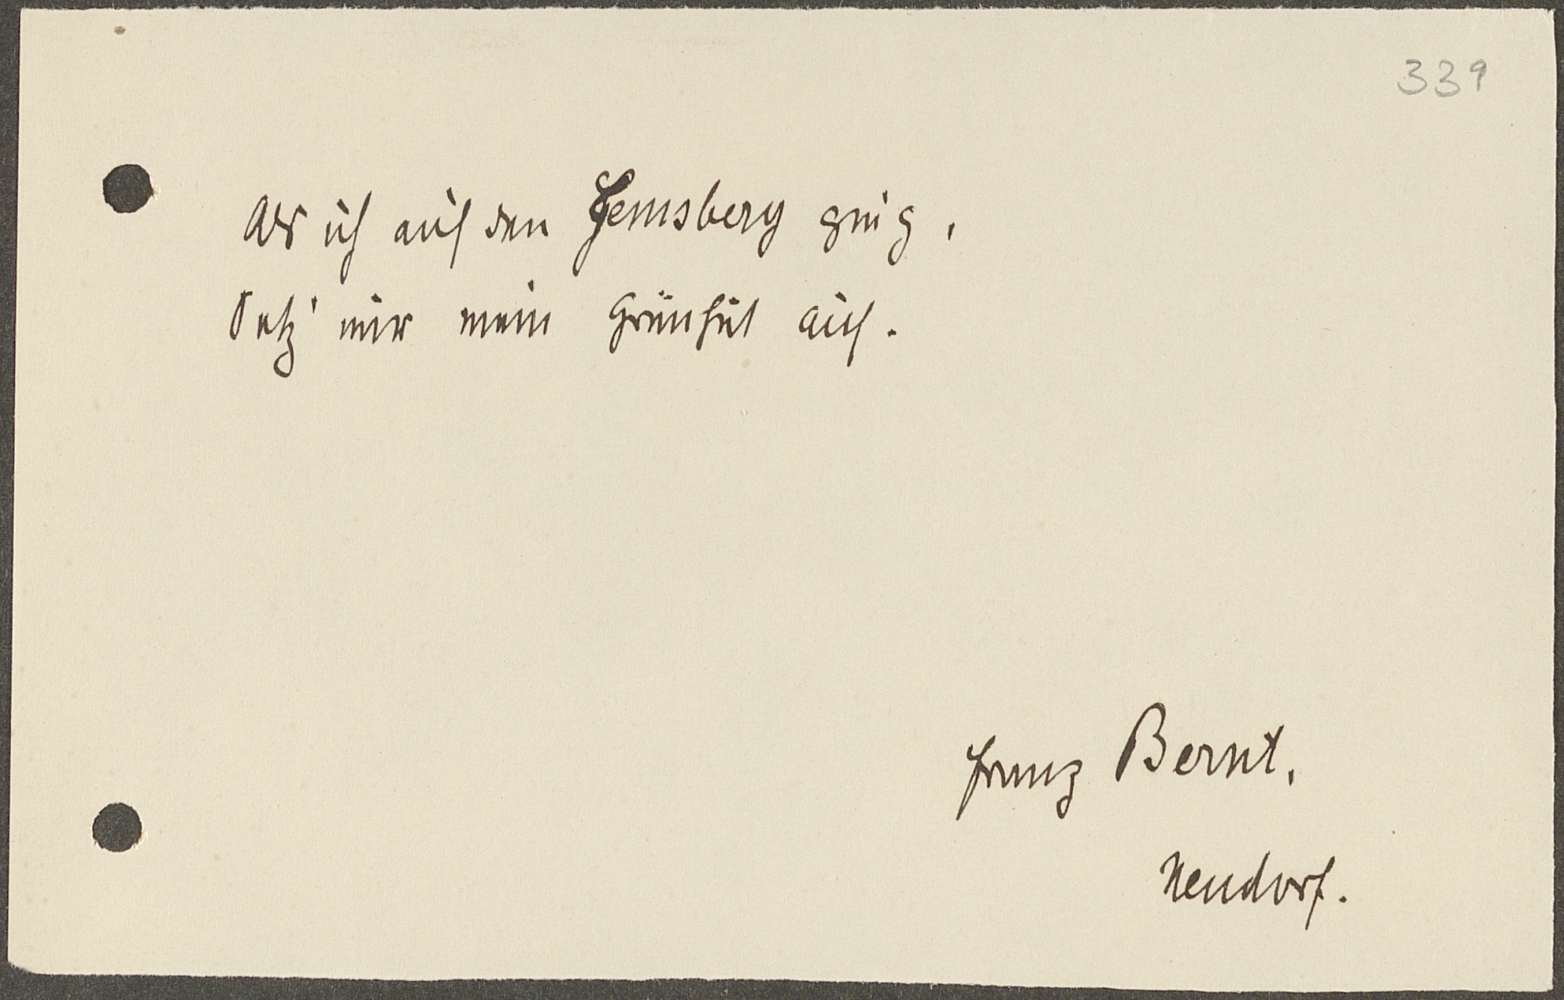 339
Als ich auf den Hemsberg ging,
Setz' mir mein Grünhut auf.
Franz Bernt.
Neudorf.